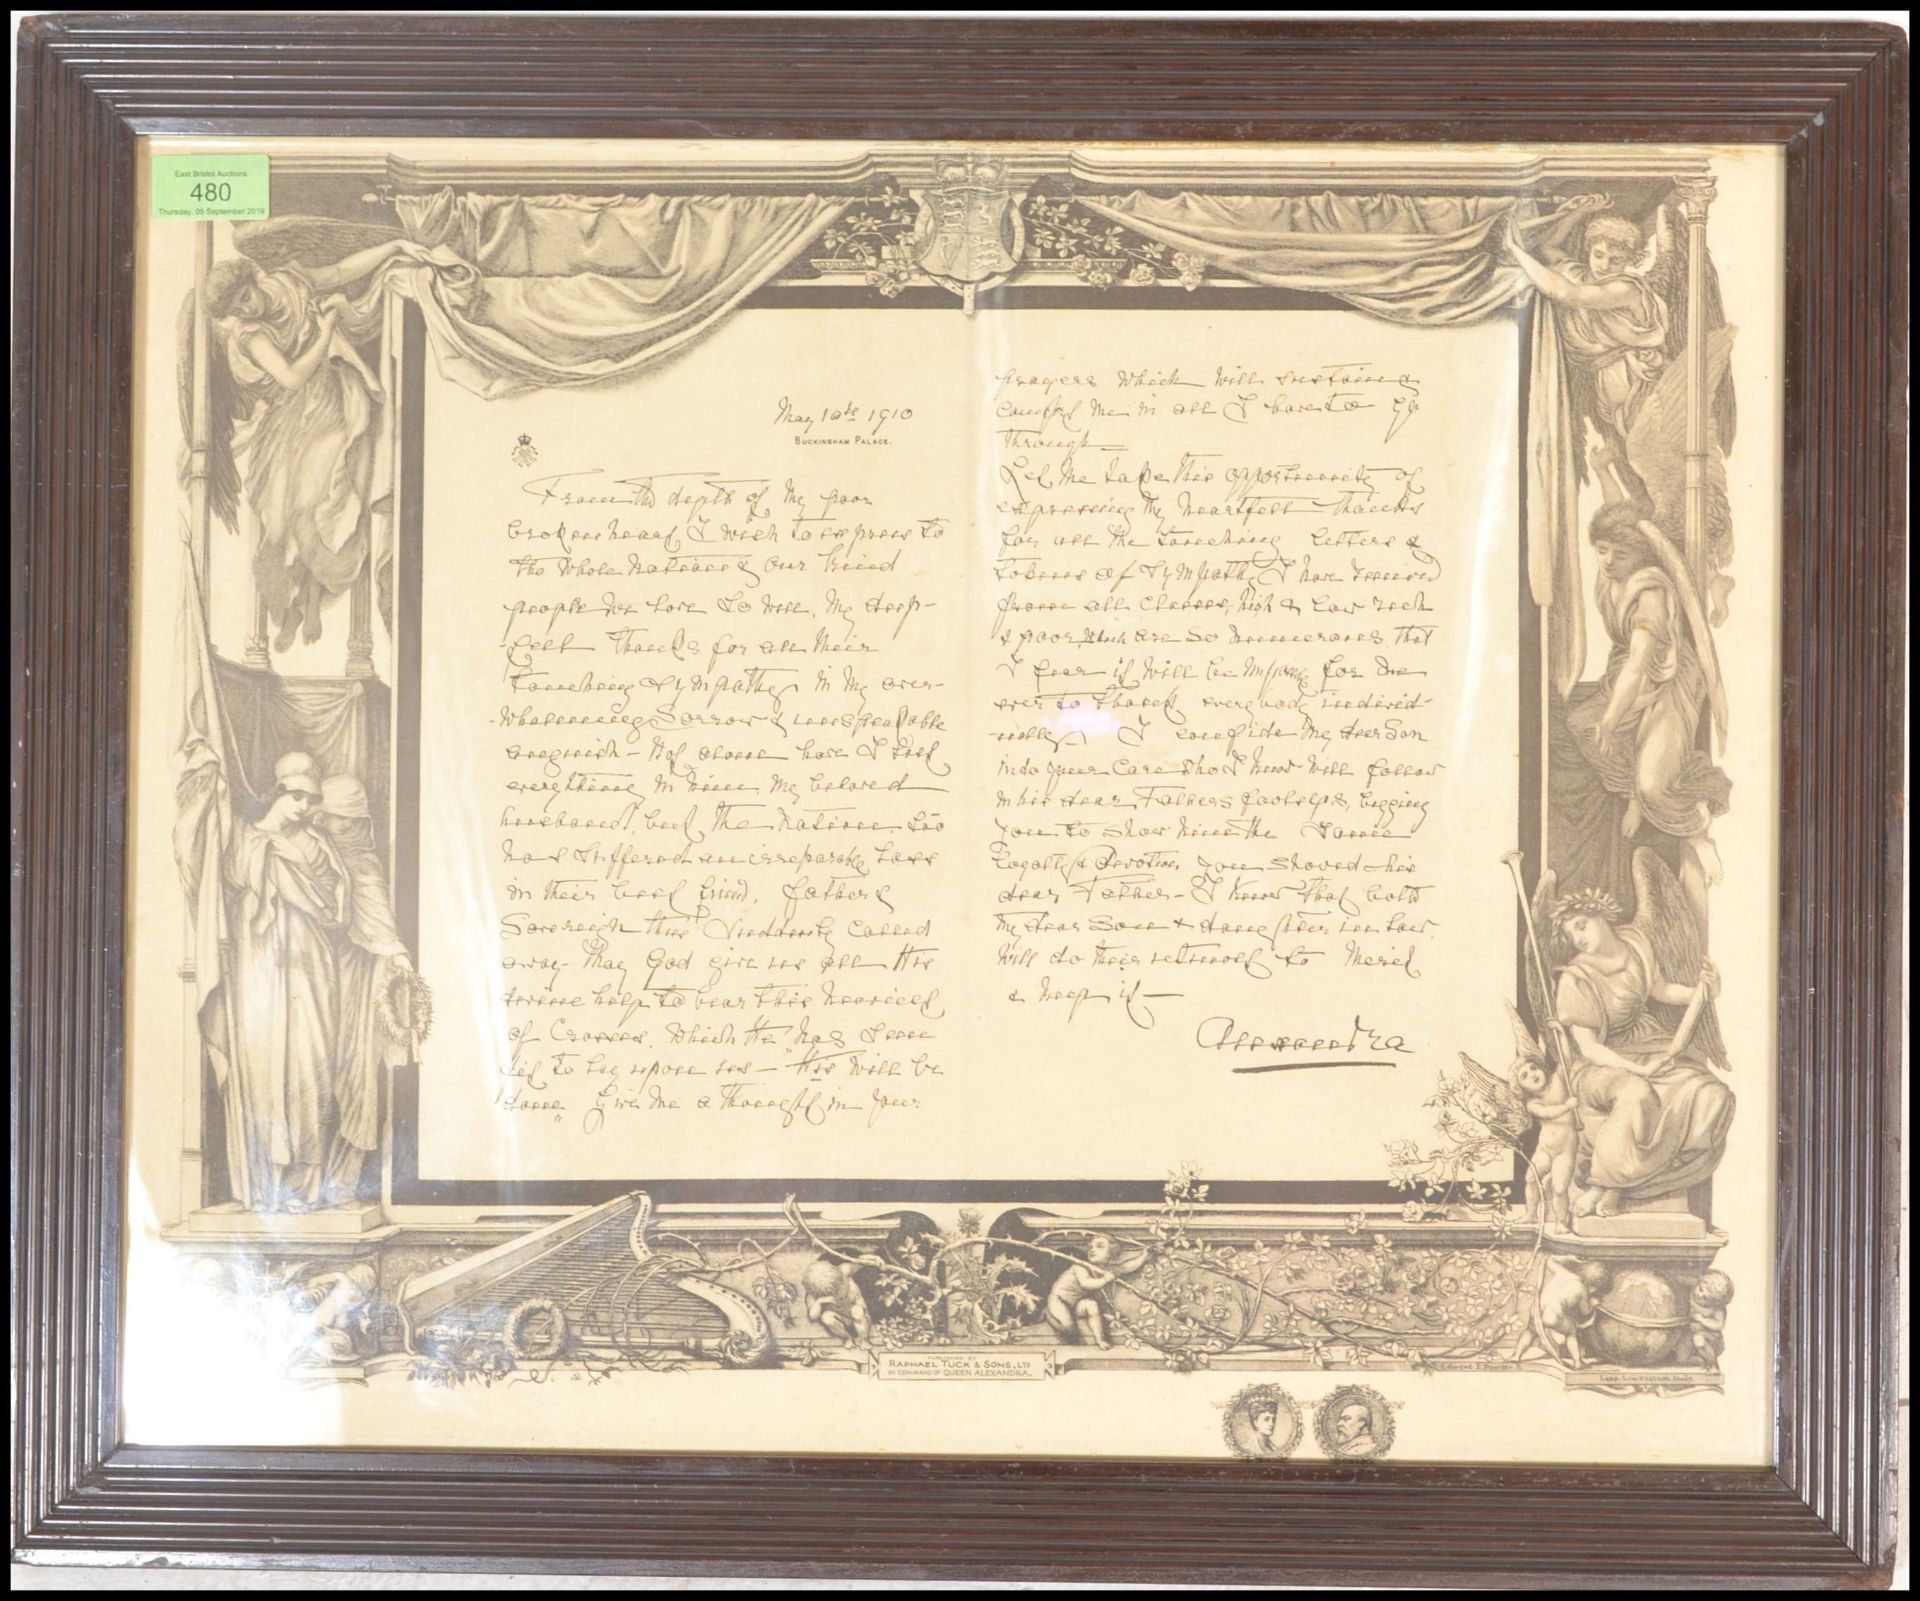 East Bristol Auctions
480
Thursday, 05 September 2019
May 10th 1910
BUCKINGHAM PALACE.
From the depth of my poor
broken heart I wish to express to
the whole nation & our kind
people we love so well my deep-
-felt thanks for all their
touching sympathy in my over-
-whelming sorrow & unspeakable
anguish - Not alone have I lost
everything in him, my beloved
husband, but the nation, too
has suffered an irreparable loss
in their best friend, father &
Sovereign thus suddenly called
away - May God give us all His
divine help to bear this heaviest
of crosses, which He has seen
fit to lay upon us - "His will be
done" Give me a thought in your
prayers which will sustain &
comfort me in all I have to go
through -
Let me take this opportunity of
expressing my heartfelt thanks
for all the touching letters &
tokens of sympathy I have received
from all classes, high & low rich
& poor, which are so numerous that
I fear it will be impossible for me
ever to thank everybody individ-
-ually - I confide my dear Son
into your care who I know will follow
in his dear Fathers footsteps, begging
you to show him the same
loyalty & devotion you showed his
dear Father - I know that both
my dear Son & daughter in law
will do their utmost to merit
& keep it -
Alexandra
PUBLISHED BY
RAPHAEL TUCK & SONS, LTD
BY COMMAND OF QUEEN ALEXANDRA.